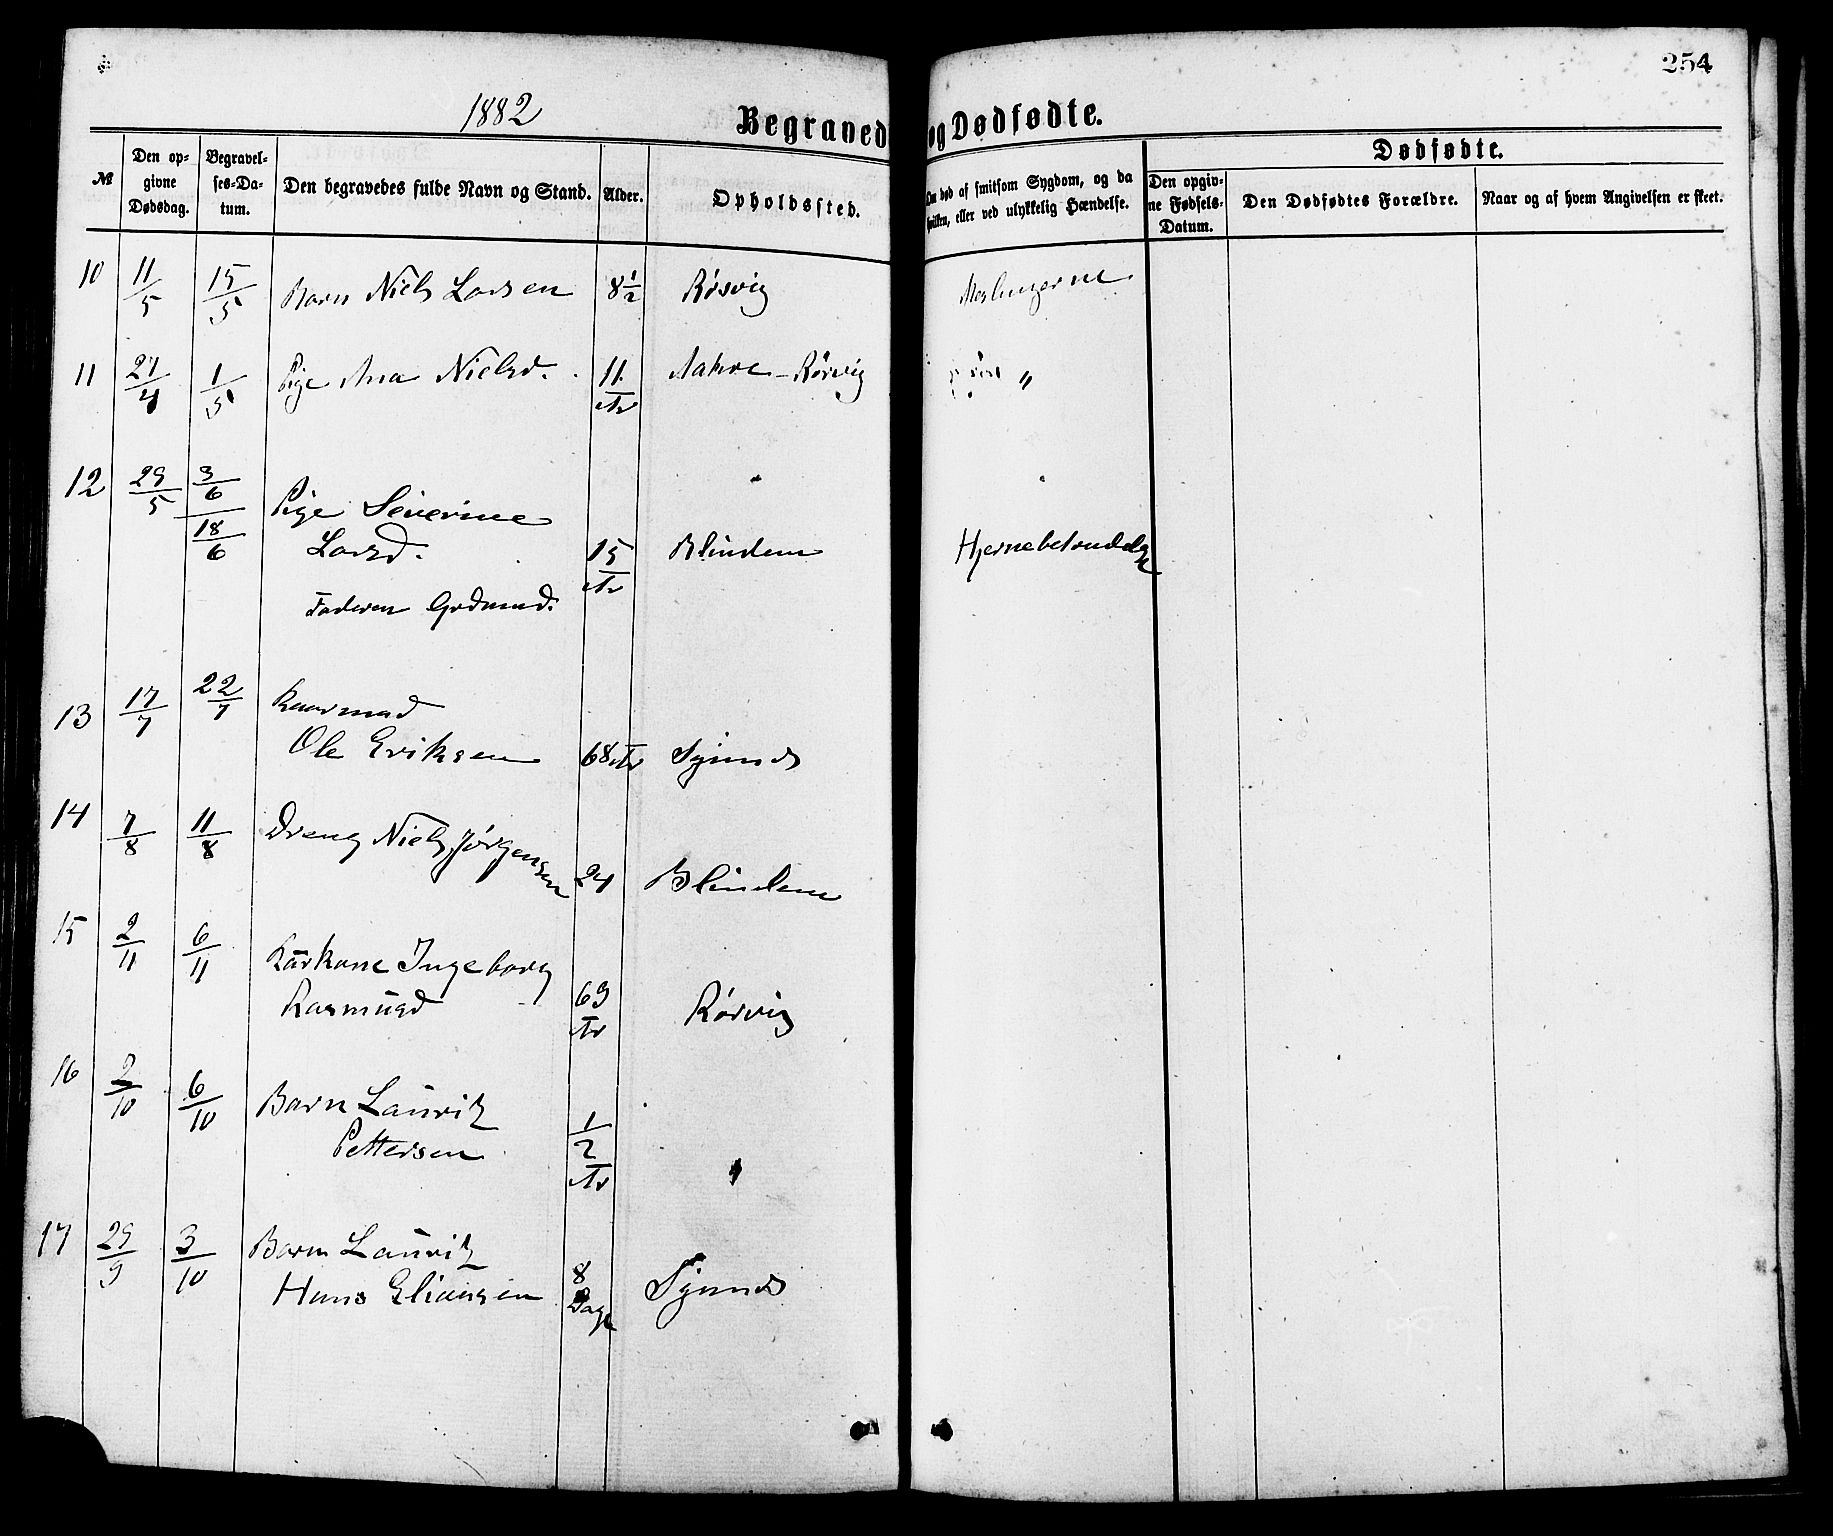 254
1882
Begraved og Dødfødte.
Dødfødte.
№
Den opgivne Dødsdag.
Begravelses-Datum.
Den begravedes fulde Navn og Stand.
Alder.
Opholdssted.
Om død af smitsom Sygdom, og da hvilken, eller ved ulykkelig Hændelse.
Den opgivne Fødsels-Datum.
Den Dødfødtes Forældre.
Naar og af hvem Angivelsen er skeet.
10 11/5 15/5 Barn Niels Larsen 8 1/2 Rørvig Meslingerne
11 27/4 1/5 Pige Ana Nielsd. 11 Ar Aakre - Rørvig "
12 29/5 3/6
18/6 Pige Severine
Larsd. 15 Ar Blindem Hjernebetændelse
Faderen Gudmund.
13 17/7 22/7 Kaarmad
Ole Eriksen 68 Ar Synnes
14 7/8 11/8 Dreng Niels Jørgensen 24 Blindem
15 2/11 6/11 Kårkone Ingeborg
Rasmusd 69 Ar Rørvig
16 2/10 6/10 Barn Lauritz
Pettersen 1/2 Ar "
17 29/9 3/10 Barn Lauritz
Hans Eliassen 8 Dage Synnes